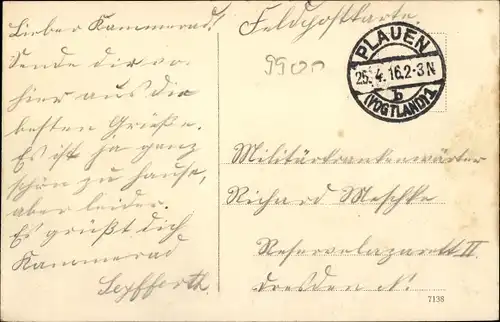 Lieber Kammerad!
Sende dir vor
hier aus die
besten Grüße.
Es ist ja ganz
schön zu hause,
aber leider.
Es grüßt dich
Kammerad
Seyfferth.
Feldpostkarte.
9900
PLAUEN
26.4.16.2-3N
b
(VOGTLAND)1
Militärkrankenwärter
Richard Meschke
Reservelazarett II
Dresden N.
7138